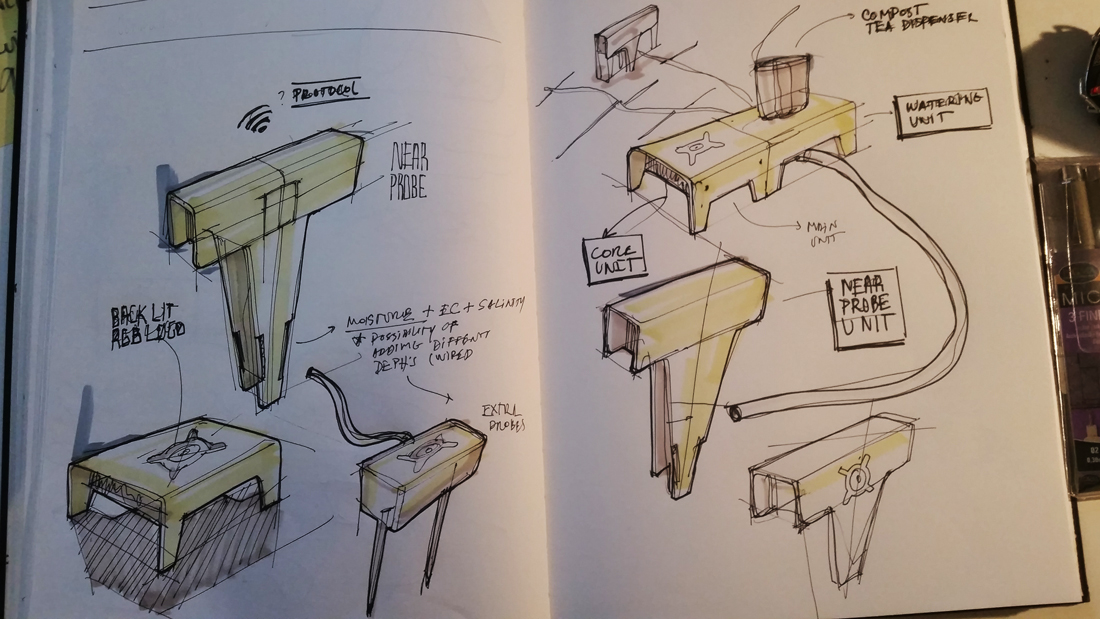 ? PROTOCOL
NEAR
PROBE
BACK LIT
RGB LOGO
MOISTURE + EC + SALINITY
* POSSIBILITY OF
ADDING DIFFENT
DEPTH'S (WIRED
EXTRA
PROBES
COMPOST
TEA DISPENSER
WATERING
UNIT
MAIN
UNIT
CORE
UNIT
NEAR
PROBE
UNIT
MIC
3 FIN